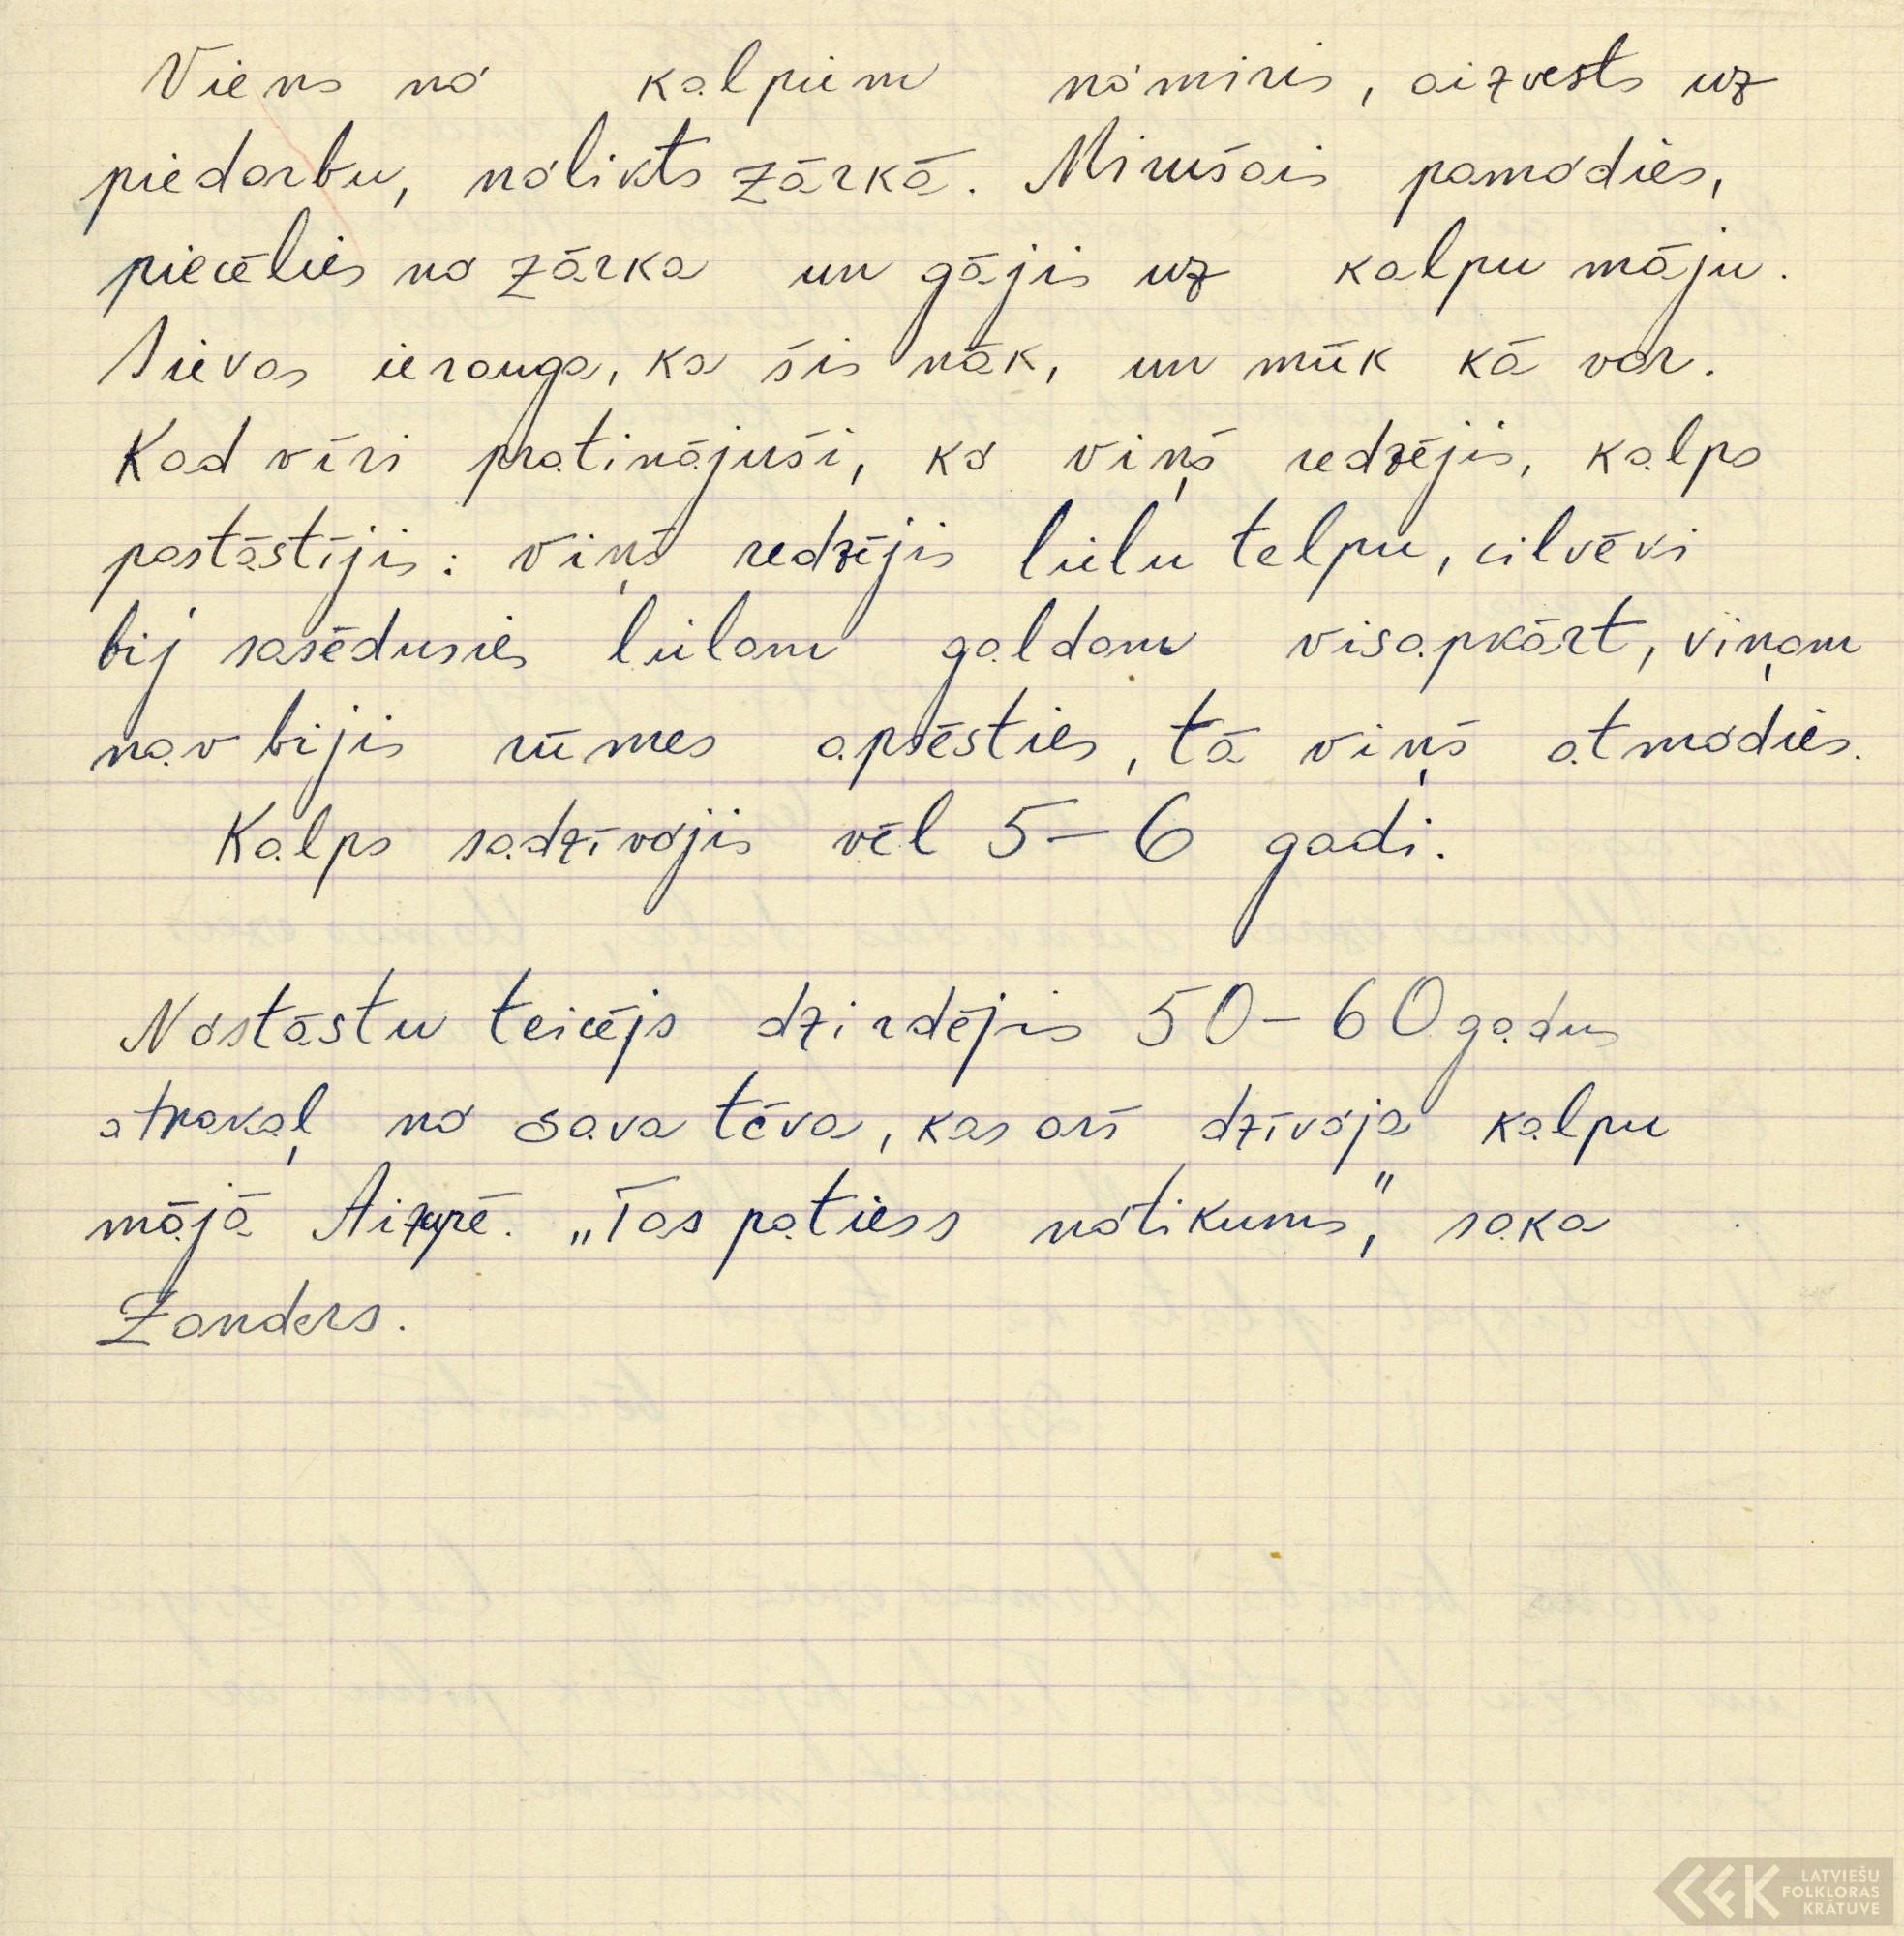 Viens no kalpiem nomiris, aizvests uz
piedarbu, nolikts zārkā. Mirušais pamodies,
piecēlies no zārka un gājis uz kalpu māju.
Sievas ierauga, ka šis nāk, un mūk kā var.
Kad vīri pratinājuši, ko viņš redzējis, kalps
pastāstījis: viņš redzējis lielu telpu, cilvēki
bij sasēdušies lielam galdam visapkārt, viņam
nav bijis rūmes apsēsties, tā viņš atmodies.
Kalps sadzīvojis vēl 5-6 gadi.
Nostāstu teicējs dzirdējis 50-60 gadus
atpakaļ no sava tēva, kas arī dzīvoja kalpu
mājā Aizupē. „Tas patiess notikums," saka
Zanders.
LATVIEŠU
FOLKLORAS
KRĀTUVE